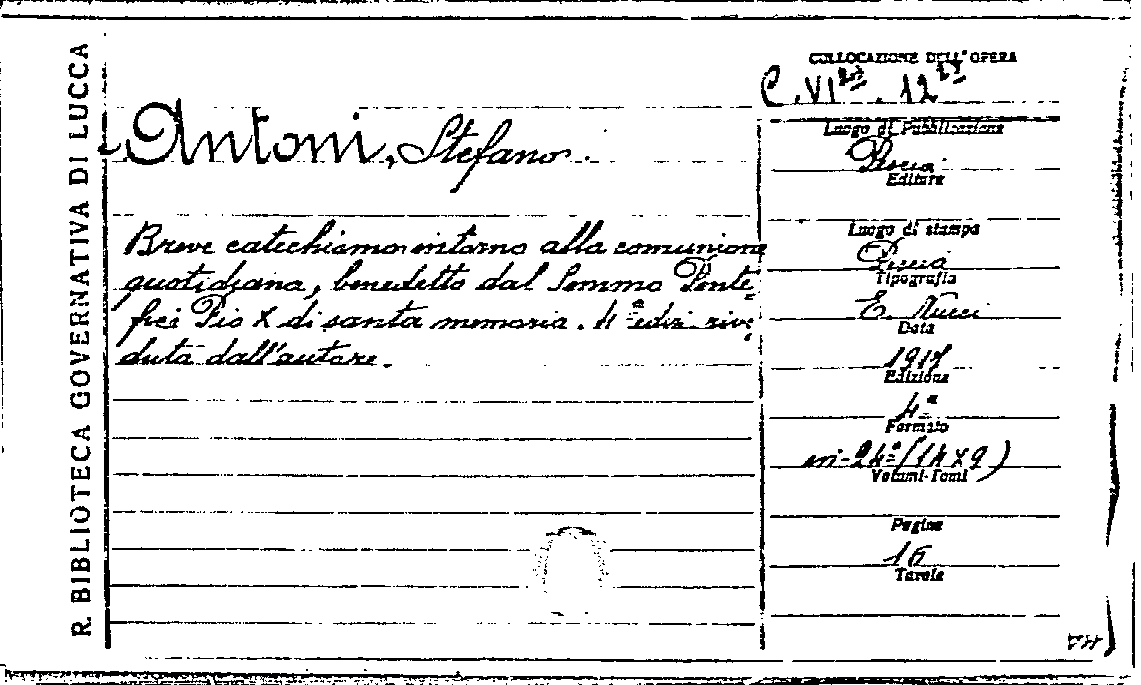 R. BIBLIOTECA GOVERNATIVA DI LUCCA
Antoni, Stefano.
Breve catechismo intorno alla comunione
quotidiana, benedetto dal Sommo Ponte-
fice Pio X di santa memoria. 4ª ediz. rive-
duta dall'autore.
COLLOCAZIONE DELL'OPERA
C. VI . 12
Luogo di Pubblicazione
Pescia
Editore
Luogo di stampa
Pescia
Tipografia
E. Nucci
Data
Edizione
4ª
Formato
in-24º (14 x 9)
Volumi-Tomi
Pagine
16
Tavole